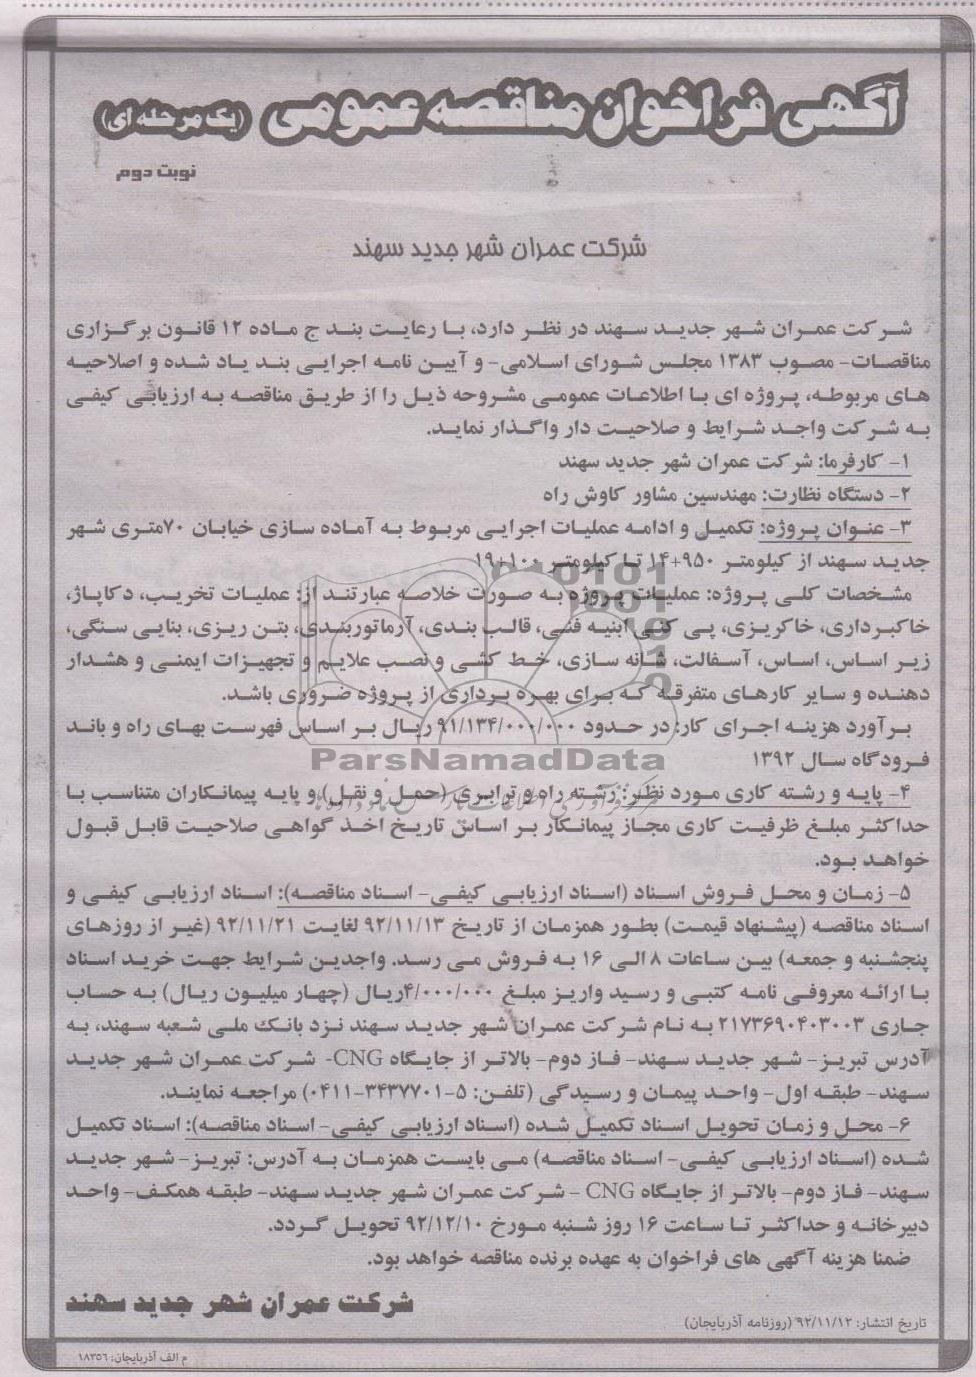 آگهی فراخوان مناقصه عمومی (یک مرحله ای)
نوبت دوم
شرکت عمران شهر جدید سهند
شرکت عمران شهر جدید سهند در نظر دارد، با رعایت بند ج ماده ۱۲ قانون برگزاری
مناقصات- مصوب ۱۳۸۳ مجلس شورای اسلامی- و آیین نامه اجرایی بند یاد شده و اصلاحیه
های مربوطه، پروژه ای با اطلاعات عمومی مشروحه ذیل را از طریق مناقصه به ارزیابی کیفی
به شرکت واجد شرایط و صلاحیت دار واگذار نماید.
۱- کارفرما: شرکت عمران شهر جدید سهند
۲- دستگاه نظارت: مهندسین مشاور کاوش راه
۳- عنوان پروژه: تکمیل و ادامه عملیات اجرایی مربوط به آماده سازی خیابان ۷۰متری شهر
جدید سهند از کیلومتر ۹۵۰+۱۴ تا کیلومتر ۱۰۰+۱۹
مشخصات کلی پروژه: عملیات پروژه به صورت خلاصه عبارتند از: عملیات تخریب، دکاپاژ،
خاکبرداری، خاکریزی، پی کنی ابنیه فنی، قالب بندی، آرماتوربندی، بتن ریزی، بنایی سنگی،
زیر اساس، اساس، آسفالت، شانه سازی، خط کشی و نصب علایم و تجهیزات ایمنی و هشدار
دهنده و سایر کارهای متفرقه که برای بهره برداری از پروژه ضروری باشد.
برآورد هزینه اجرای کار: در حدود ۹۱/۱۳۴/۰۰۰/۰۰۰ ریال بر اساس فهرست بهای راه و باند
فرودگاه سال ۱۳۹۲
ParsNamadData
۴- پایه و رشته کاری مورد نظر: رشته راه و ترابری (حمل و نقل) و پایه پیمانکاران متناسب با
حداکثر مبلغ ظرفیت کاری مجاز پیمانکار بر اساس تاریخ اخذ گواهی صلاحیت قابل قبول
خواهد بود.
۵- زمان و محل فروش اسناد (اسناد ارزیابی کیفی- اسناد مناقصه): اسناد ارزیابی کیفی و
اسناد مناقصه (پیشنهاد قیمت) بطور همزمان از تاریخ ۹۲/۱۱/۱۳ لغایت ۹۲/۱۱/۲۱ (غیر از روزهای
پنجشنبه و جمعه) بین ساعات ۸ الی ۱۶ به فروش می رسد. واجدین شرایط جهت خرید اسناد
با ارائه معروفی نامه کتبی و رسید واریز مبلغ ۴/۰۰۰/۰۰۰ریال (چهار میلیون ریال) به حساب
جاری ۲۱۷۳۶۹۰۴۰۳۰۰۳ به نام شرکت عمران شهر جدید سهند نزد بانک ملی شعبه سهند، به
آدرس تبریز- شهر جدید سهند- فاز دوم- بالاتر از جایگاه CNG- شرکت عمران شهر جدید
سهند- طبقه اول- واحد پیمان و رسیدگی (تلفن: ۵-۳۴۳۷۷۰۱-۰۴۱۱) مراجعه نمایند.
۶- محل و زمان تحویل اسناد تکمیل شده (اسناد ارزیابی کیفی- اسناد مناقصه): اسناد تکمیل
شده (اسناد ارزیابی کیفی- اسناد مناقصه) می بایست همزمان به آدرس: تبریز- شهر جدید
سهند- فاز دوم- بالاتر از جایگاه CNG - شرکت عمران شهر جدید سهند- طبقه همکف- واحد
دبیرخانه و حداکثر تا ساعت ۱۶ روز شنبه مورخ ۹۲/۱۲/۱۰ تحویل گردد.
ضمنا هزینه آگهی های فراخوان به عهده برنده مناقصه خواهد بود.
شرکت عمران شهر جدید سهند
تاریخ انتشار: ۹۲/۱۱/۱۲ (روزنامه آذربایجان)
م الف آذربایجان: ۱۸۳۵۶